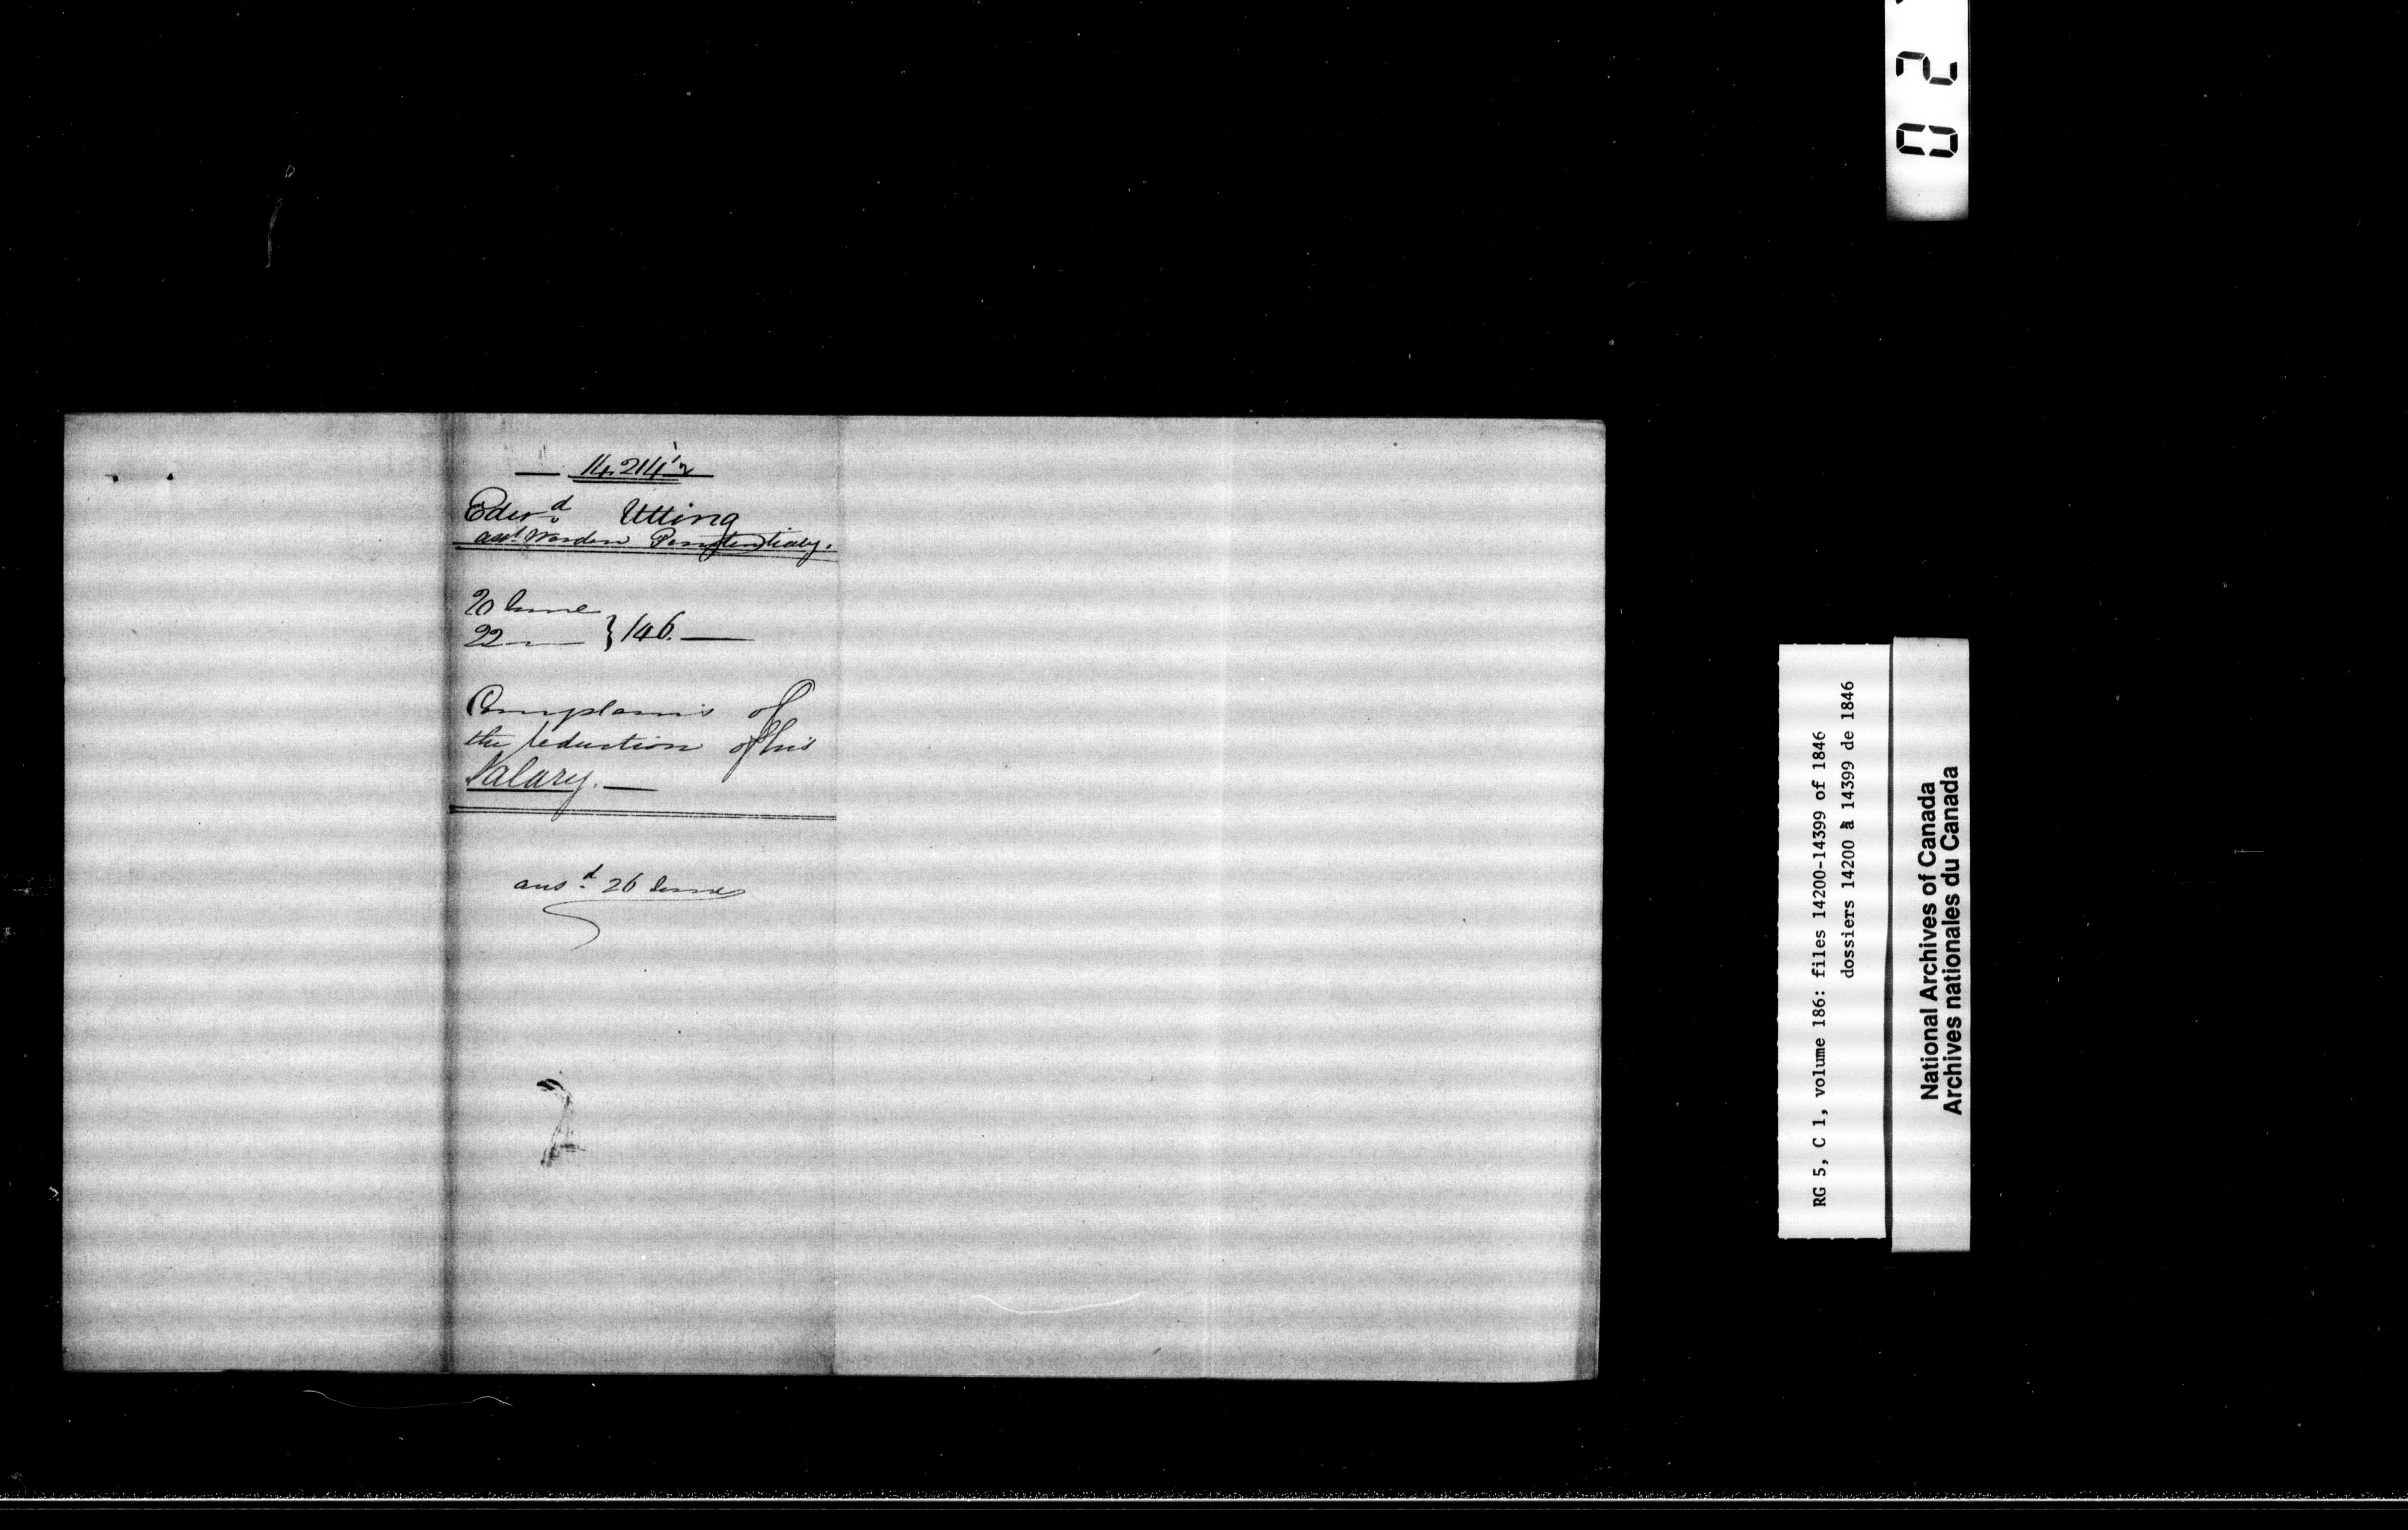 14.214½
Edwd Utting
asst Warden Penitentiary.
20 June
22 — } /46. —
Complains of
the reduction of his
Salary. —
ansd 26 June
02
RG 5, C 1, volume 186: files 14200-14399 of 1846
dossiers 14200 à 14399 de 1846
National Archives of Canada
Archives nationales du Canada